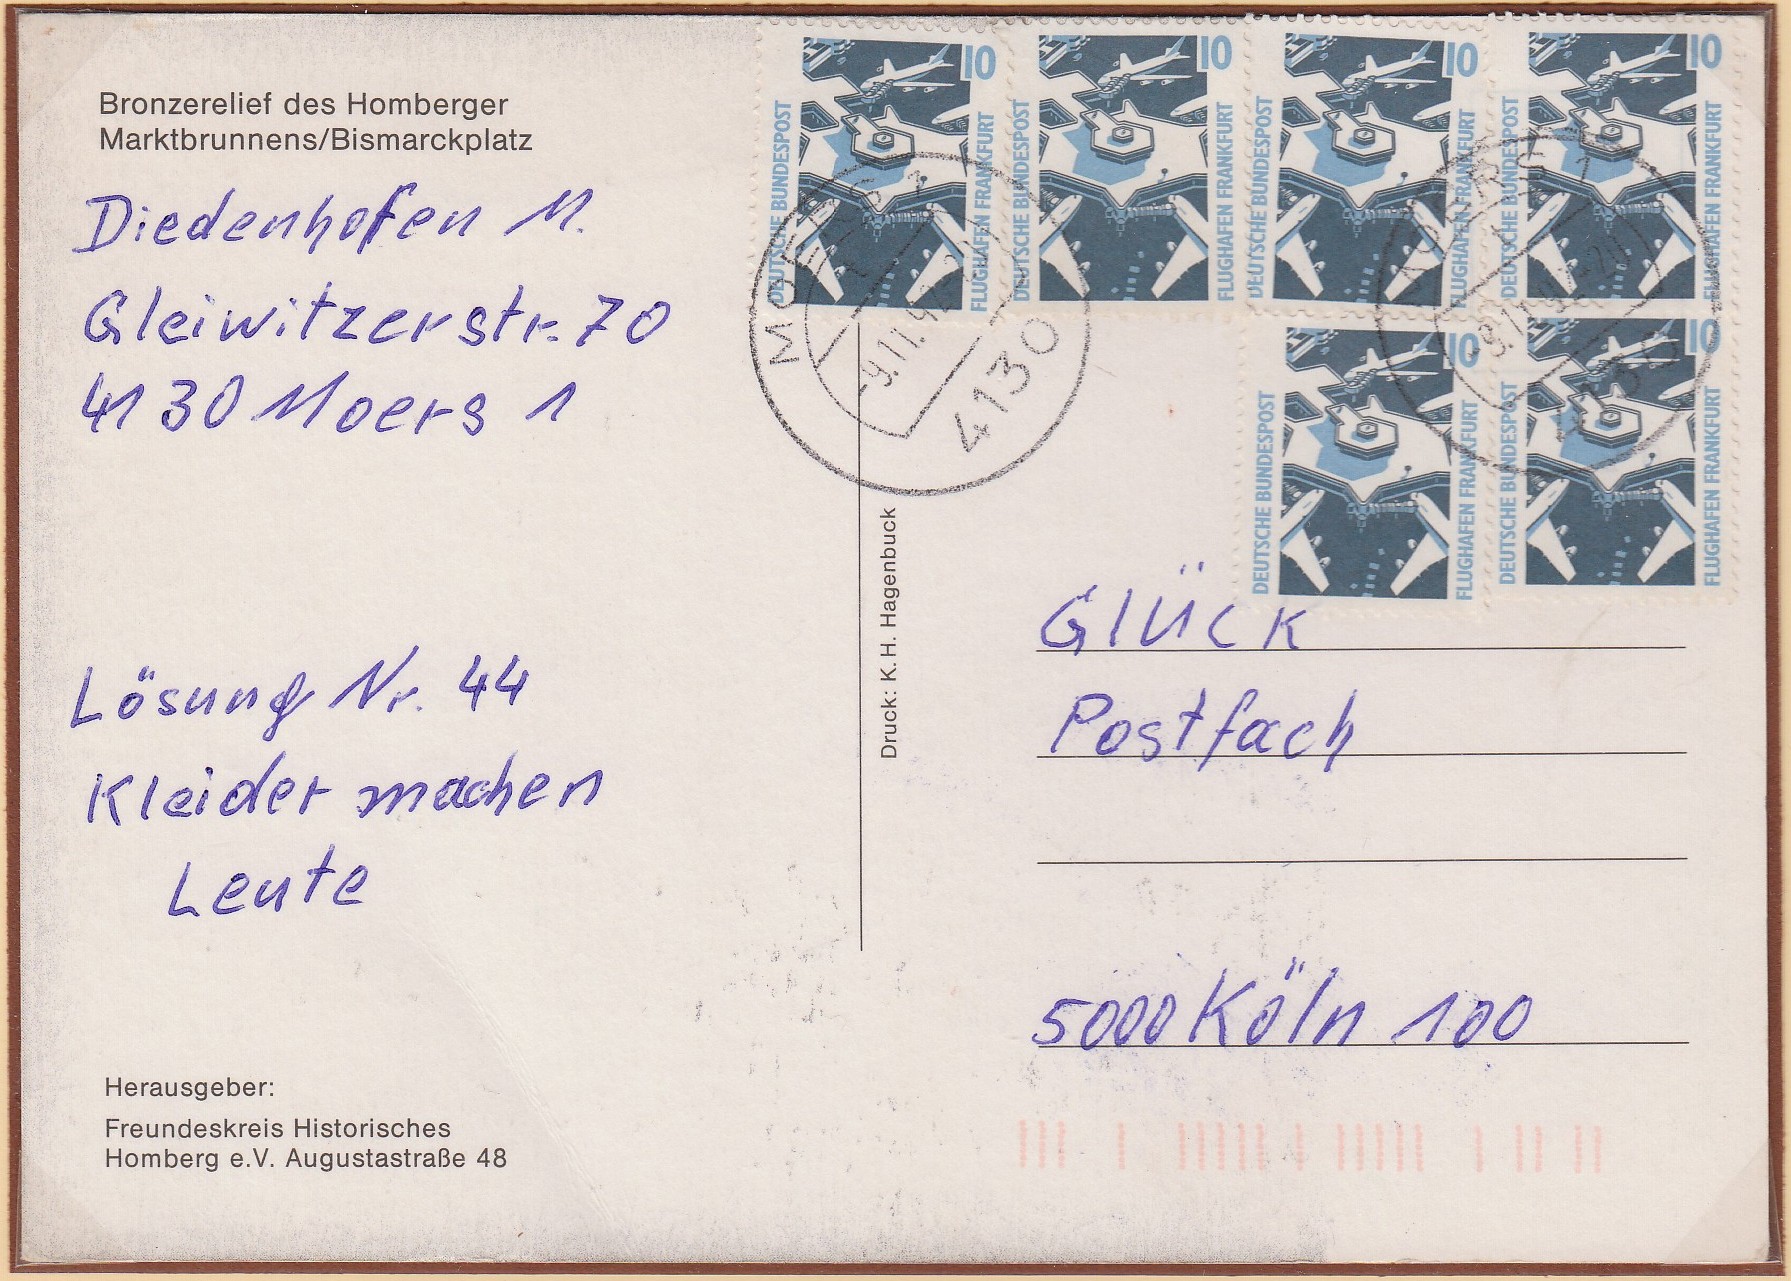 Bronzerelief des Homberger
Marktbrunnens/Bismarckplatz
Diedenhofen M.
Gleiwitzerstr. 70
4130 Moers 1
Lösung Nr. 44
Kleider machen
Leute
Herausgeber:
Freundeskreis Historisches
Homberg e.V. Augustastraße 48
Druck: K. H. Hagenbuck
10
DEUTSCHE BUNDESPOST
FLUGHAFEN FRANKFURT
10
DEUTSCHE BUNDESPOST
FLUGHAFEN FRANKFURT
10
DEUTSCHE BUNDESPOST
FLUGHAFEN FRANKFURT
10
DEUTSCHE BUNDESPOST
FLUGHAFEN FRANKFURT
10
DEUTSCHE BUNDESPOST
FLUGHAFEN FRANKFURT
10
DEUTSCHE BUNDESPOST
FLUGHAFEN FRANKFURT
MOERS 1
4130
MOERS 1
GLÜCK
Postfach
5000 Köln 100